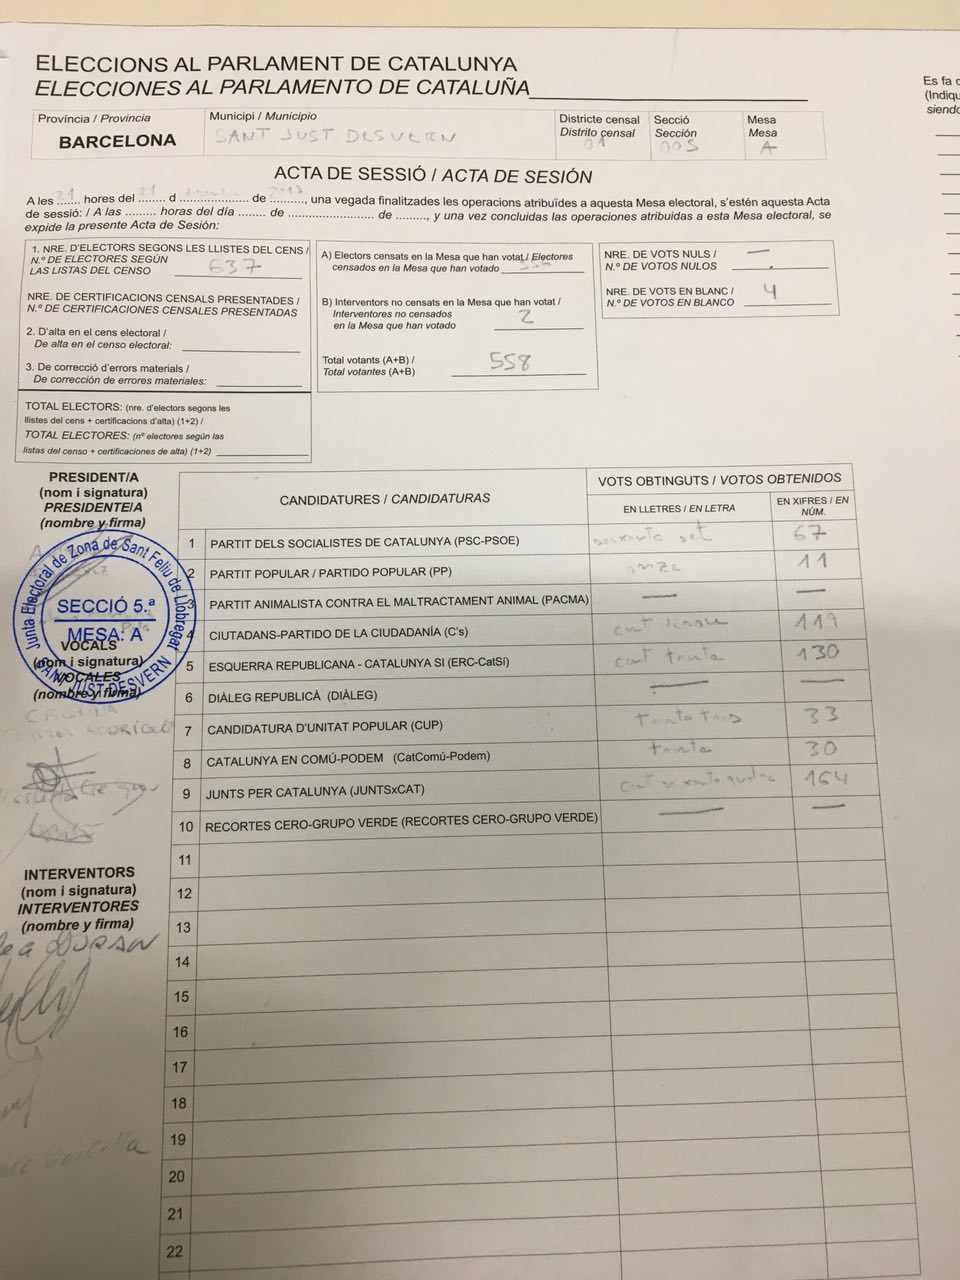 ELECCIONS AL PARLAMENT DE CATALUNYA
ELECCIONES AL PARLAMENTO DE CATALUÑA
Es fa
(Indiq
siendo
Província / Provincia
BARCELONA
Municipi / Municipio
SANT JUST DESVERN
Districte censal
Distrito censal
01
Secció
Sección
005
Mesa
Mesa
A
ACTA DE SESSIÓ / ACTA DE SESIÓN
A les 21 hores del 21 d de 2017, una vegada finalitzades les operacions atribuïdes a aquesta Mesa electoral, s'estén aquesta Acta
de sessió: / A las ......... horas del día ....... de ........................ de ........., y una vez concluidas las operaciones atribuidas a esta Mesa electoral, se
expide la presente Acta de Sesión:
1. NRE. D'ELECTORS SEGONS LES LLISTES DEL CENS /
N.º DE ELECTORES SEGÚN
LAS LISTAS DEL CENSO 637
NRE. DE CERTIFICACIONS CENSALS PRESENTADES /
N.º DE CERTIFICACIONES CENSALES PRESENTADAS
2. D'alta en el cens electoral /
De alta en el censo electoral:
3. De correcció d'errors materials /
De corrección de errores materiales:
TOTAL ELECTORS: (nre. d'electors segons les
llistes del cens + certificacions d'alta) (1+2) /
TOTAL ELECTORES: (nº electores según las
listas del censo + certificaciones de alta) (1+2)
A) Electors censats en la Mesa que han votat / Electores
censados en la Mesa que han votado 556
B) Interventors no censats en la Mesa que han votat /
Interventores no censados
en la Mesa que han votado 2
Total votants (A+B) /
Total votantes (A+B) 558
NRE. DE VOTS NULS /
N.º DE VOTOS NULOS —
NRE. DE VOTS EN BLANC /
N.º DE VOTOS EN BLANCO 4
PRESIDENT/A
(nom i signatura)
PRESIDENTE/A
(nombre y firma)
Junta Electoral de Zona de Sant Feliu de Llobregat
SECCIÓ 5.ª
MESA: A
SANT JUST DESVERN
VOCALS
(nom i signatura)
VOCALES
(nombre y firma)
CRISTINA
RODRÍGUEZ
INTERVENTORS
(nom i signatura)
INTERVENTORES
(nombre y firma)
DURAN
CANDIDATURES / CANDIDATURAS
VOTS OBTINGUTS / VOTOS OBTENIDOS
EN LLETRES / EN LETRA
EN XIFRES / EN
NÚM.
1 PARTIT DELS SOCIALISTES DE CATALUNYA (PSC-PSOE) seixanta set 67
2 PARTIT POPULAR / PARTIDO POPULAR (PP) onze 11
3 PARTIT ANIMALISTA CONTRA EL MALTRACTAMENT ANIMAL (PACMA) — —
4 CIUTADANS-PARTIDO DE LA CIUDADANÍA (C's) cent 119
5 ESQUERRA REPUBLICANA - CATALUNYA SI (ERC-CatSí) cent trenta 130
6 DIÀLEG REPUBLICÀ (DIÀLEG) — —
7 CANDIDATURA D'UNITAT POPULAR (CUP) trenta tres 33
8 CATALUNYA EN COMÚ-PODEM (CatComú-Podem) trenta 30
9 JUNTS PER CATALUNYA (JUNTSxCAT) cent seixanta quatre 164
10 RECORTES CERO-GRUPO VERDE (RECORTES CERO-GRUPO VERDE) — —
11
12
13
14
15
16
17
18
19
20
21
22